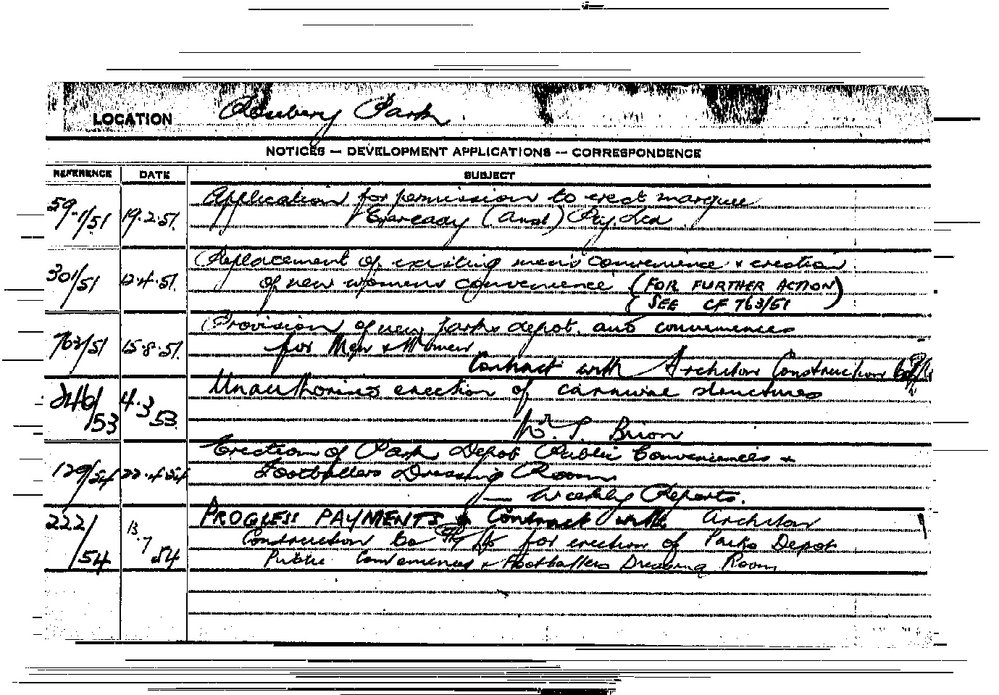 LOCATION Rosebery Park
NOTICES — DEVELOPMENT APPLICATIONS — CORRESPONDENCE
REFERENCE DATE SUBJECT
59-1/51 19.2.51. Application for permission to erect marquee
Eveready (Aust) Pty Ltd
301/51 12.4.51. Replacement of existing men's convenience & erection
of new womens convenience (FOR FURTHER ACTION)
(SEE CF 763/51
763/51 15.8.51. Provision of new parks depot and conveniences
for Men & Women
Contract with Architon Construction
/53 4.3.53. Unauthorised erection of carnival structures
Brion
129/54 22.4.54 Erection of Park Depot Public Conveniences &
Footballers Dressing Room
— Weekly Reports.
222/54 13.7.54 PROGRESS PAYMENTS Contract with Architon
Construction Co Pty Ltd for erection of Parks Depot
Public Conveniences & Footballers Dressing Room